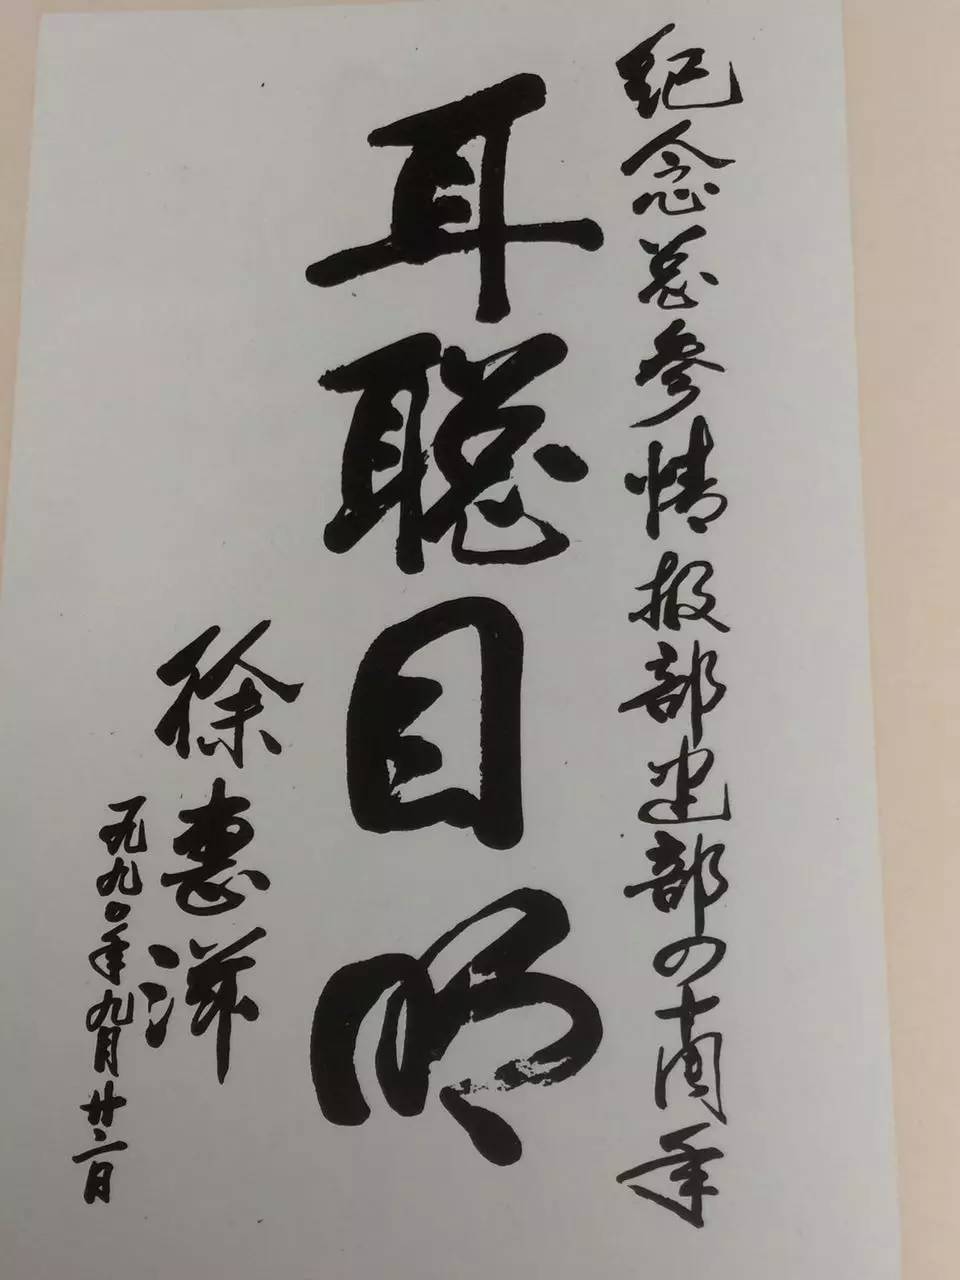 纪念总参情报部建部四十周年
耳聪目明
徐惠滋
一九九〇年九月廿二日